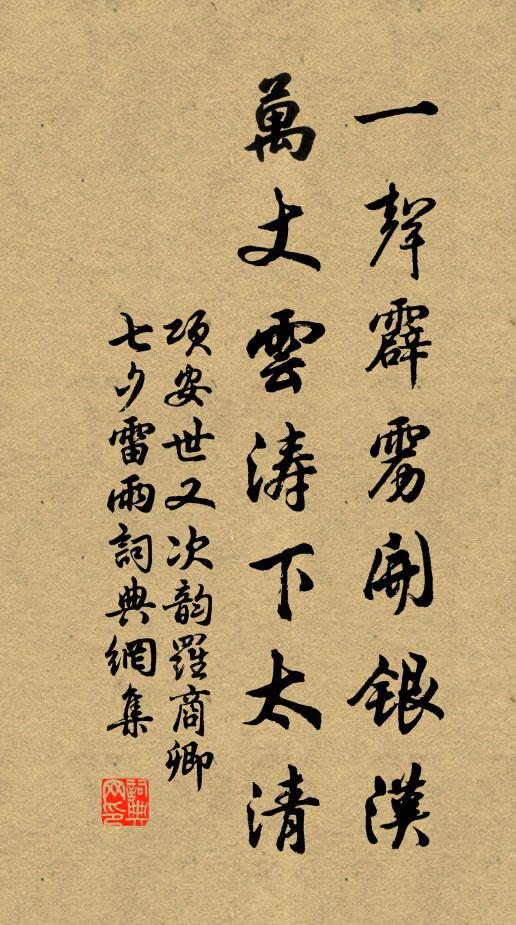 一聲霹雳開銀漢
萬丈雲涛下太清
項安世又次韵羅商卿
七夕雷雨詞典網集
詞典
网印